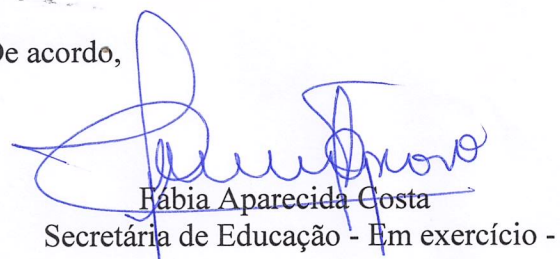 De acordo,
Fábia Aparecida Costa
Secretária de Educação - Em exercício -